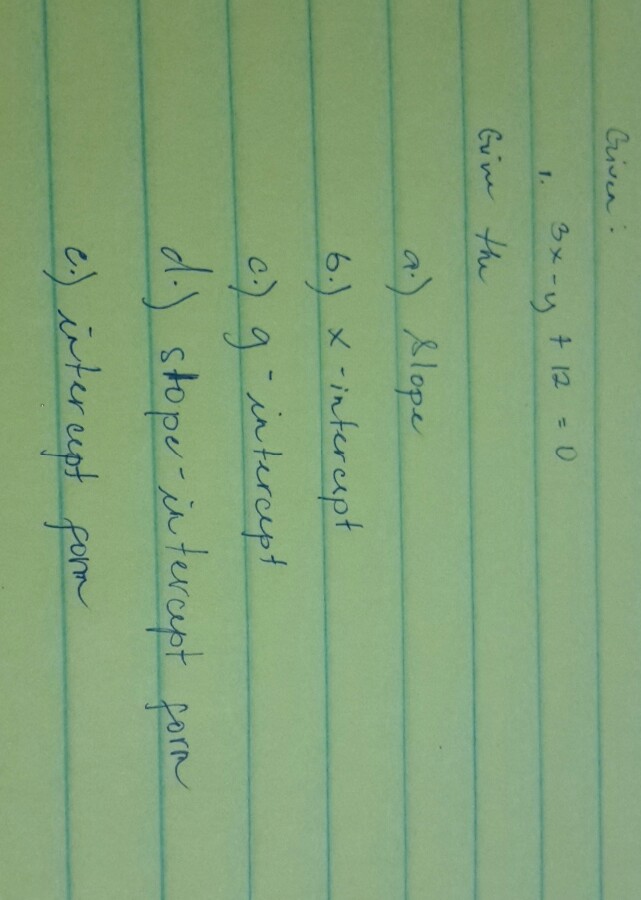 Given:
1. 3x - y + 12 = 0
Give the
a.) Slope
b.) x-intercept
c.) y-intercept
d.) slope-intercept form
e.) intercept form